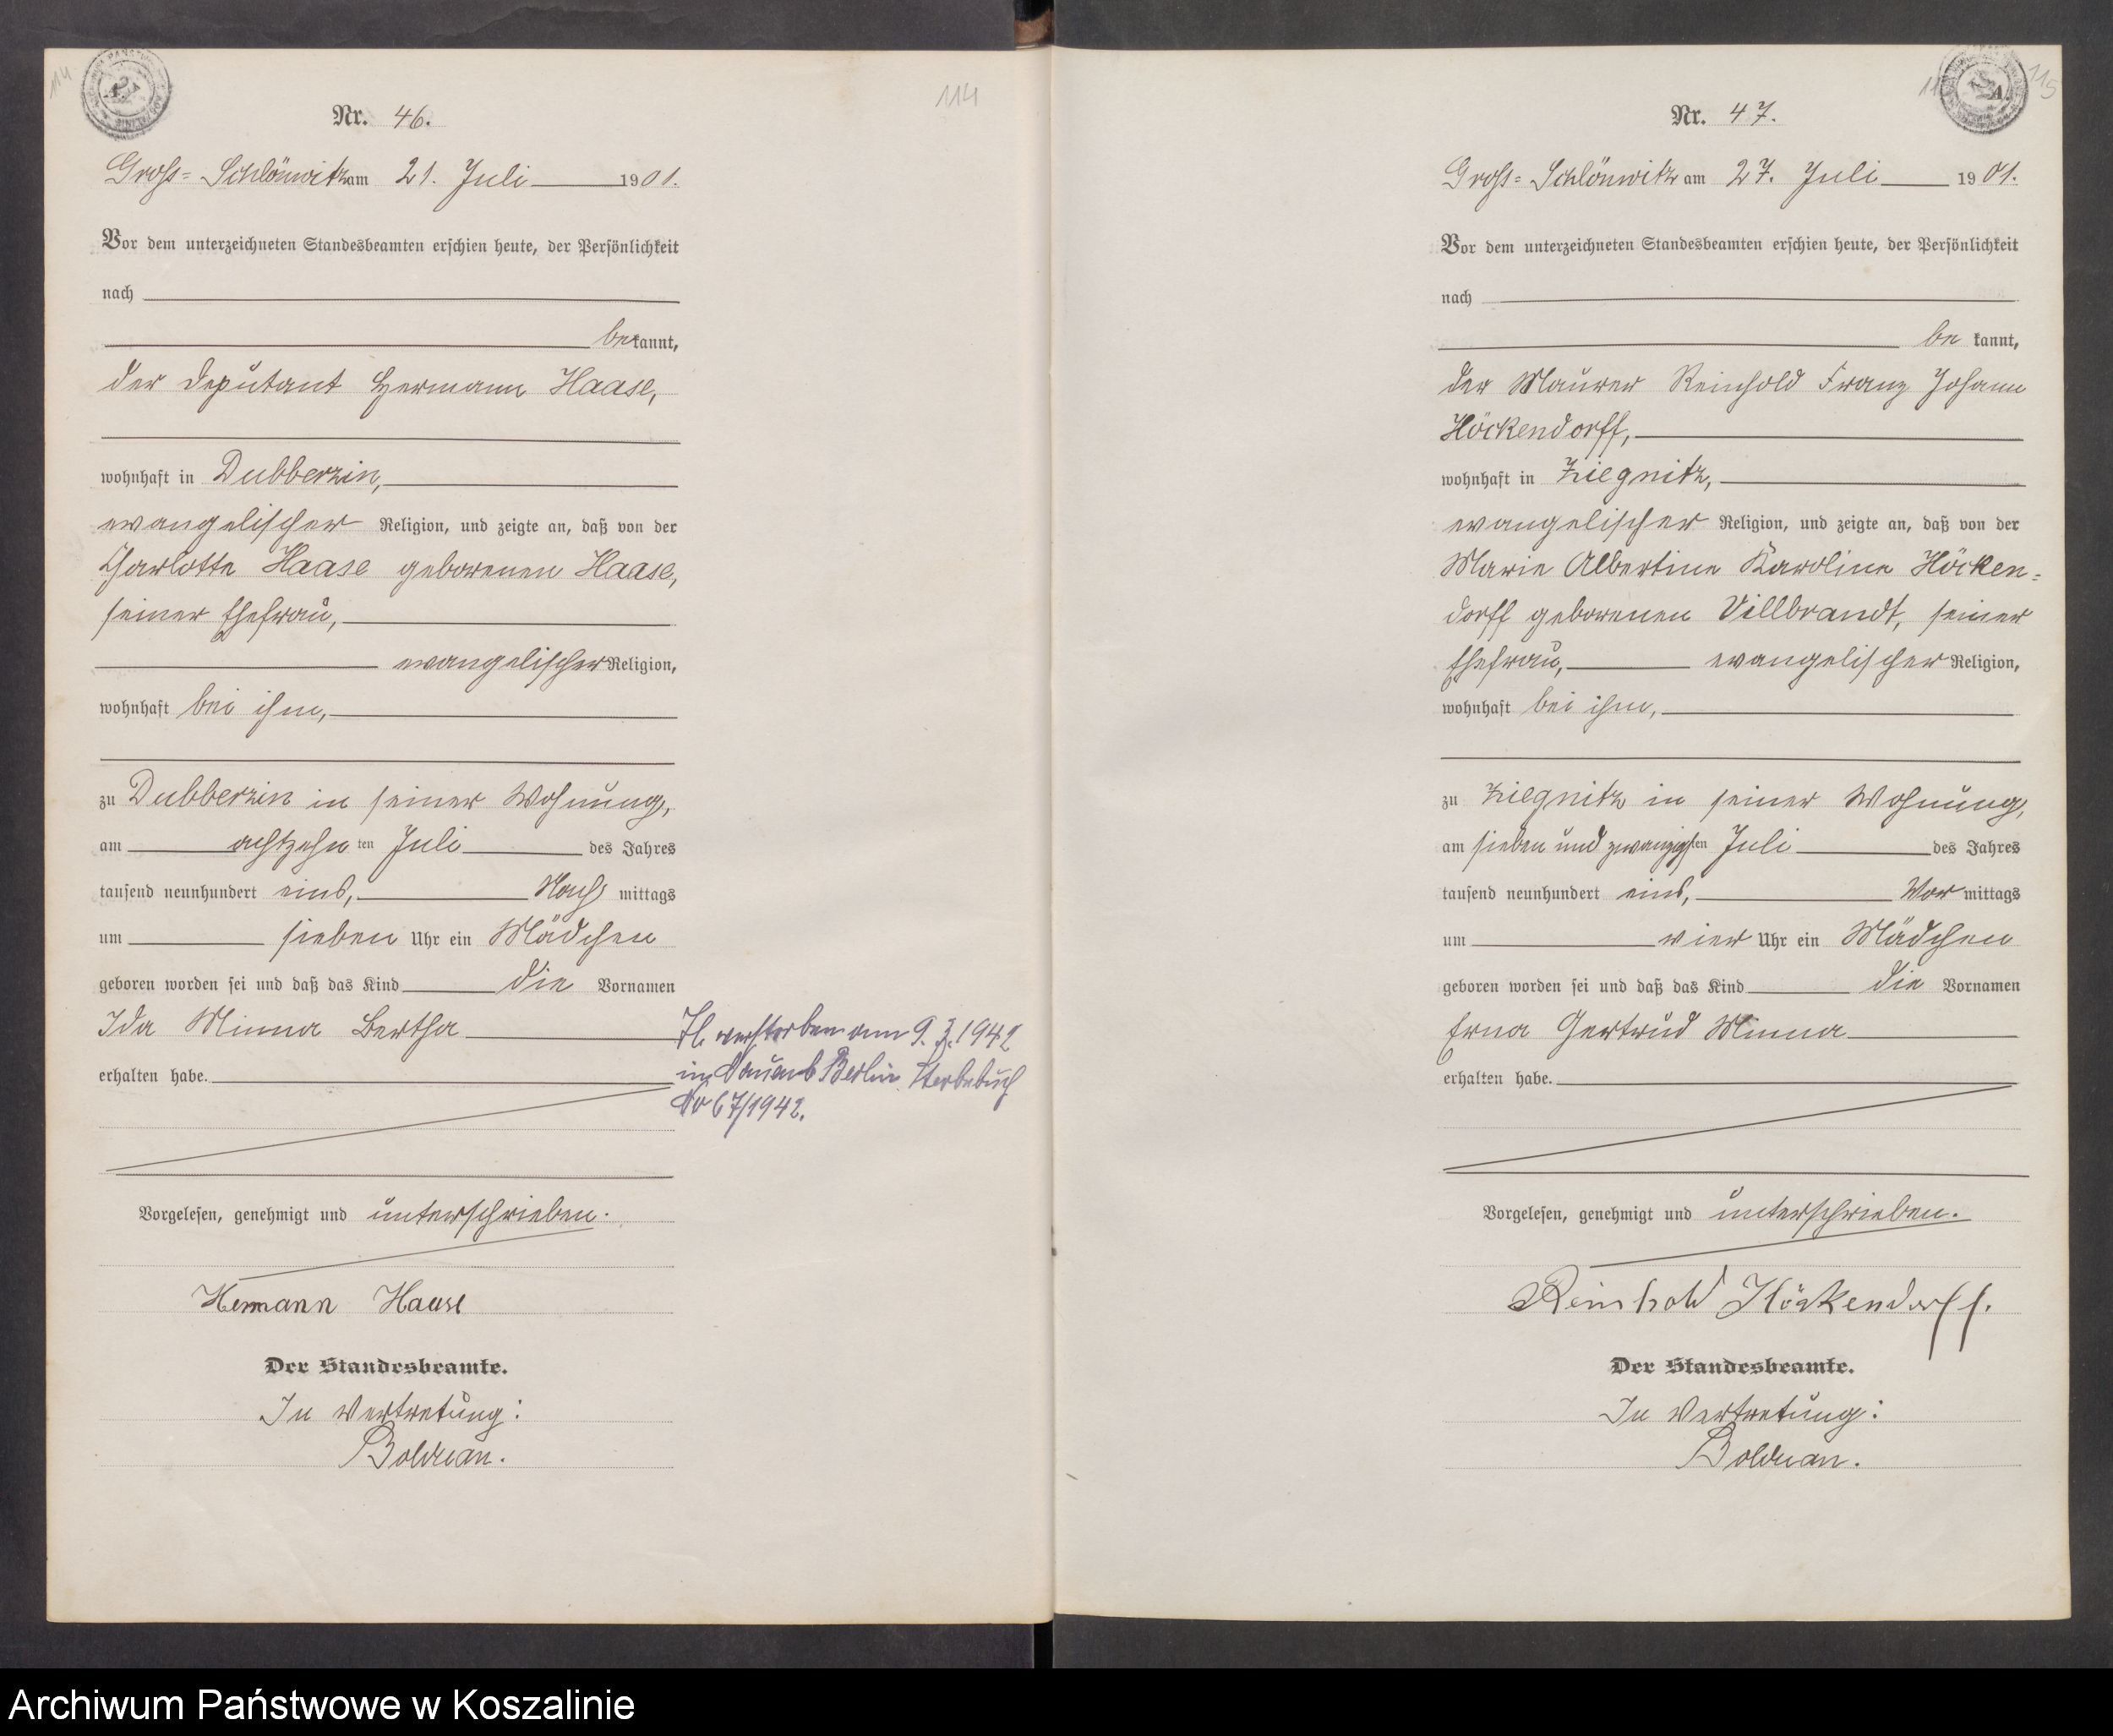 114
114
Nr. 46.
Groß= Schlönwitz am 21. Juli 1901.
Vor dem unterzeichneten Standesbeamten erschien heute, der Persönlichkeit
nach
bekannt,
der Deputant Hermann Haase,
wohnhaft in Dubberzin,
evangelischer Religion, und zeigte an, daß von der
Charlotte Haase geborenen Haase,
seiner Ehefrau,
evangelischer Religion,
wohnhaft bei ihm,
zu Dubberzin in seiner Wohnung,
am achtzehnten Juli des Jahres
tausend neunhundert eins, Nach mittags
um sieben Uhr ein Mädchen
geboren worden sei und daß das Kind die Vornamen
Ida Minna Bertha
erhalten habe.
verstorben am 9. 1942
in Nauen b Berlin Sterbebuch
No 67/1942.
Vorgelesen, genehmigt und unterschrieben.
Hermann Haase
Der Standesbeamte.
In Vertretung:
Bolduan.
115
Nr. 47.
Groß= Schlönwitz am 27. Juli 1901.
Vor dem unterzeichneten Standesbeamten erschien heute, der Persönlichkeit
nach
be kannt,
der Maurer Reinhold Franz Johann
Höckendorff,
wohnhaft in Ziegnitz,
evangelischer Religion, und zeigte an, daß von der
Marie Albertine Karoline Höcken=
dorff geborenen Villbrandt, seiner
Ehefrau, evangelischer Religion,
wohnhaft bei ihm,
zu Ziegnitz in seiner Wohnung,
am sieben und zwanzigsten Juli des Jahres
tausend neunhundert eins, Vor mittags
um vier Uhr ein Mädchen
geboren worden sei und daß das Kind die Vornamen
Erna Gertrud Minna
erhalten habe.
Vorgelesen, genehmigt und unterschrieben.
Reinhold Höckendorff.
Der Standesbeamte.
In Vertretung:
Bolduan.
Archiwum Państwowe w Koszalinie